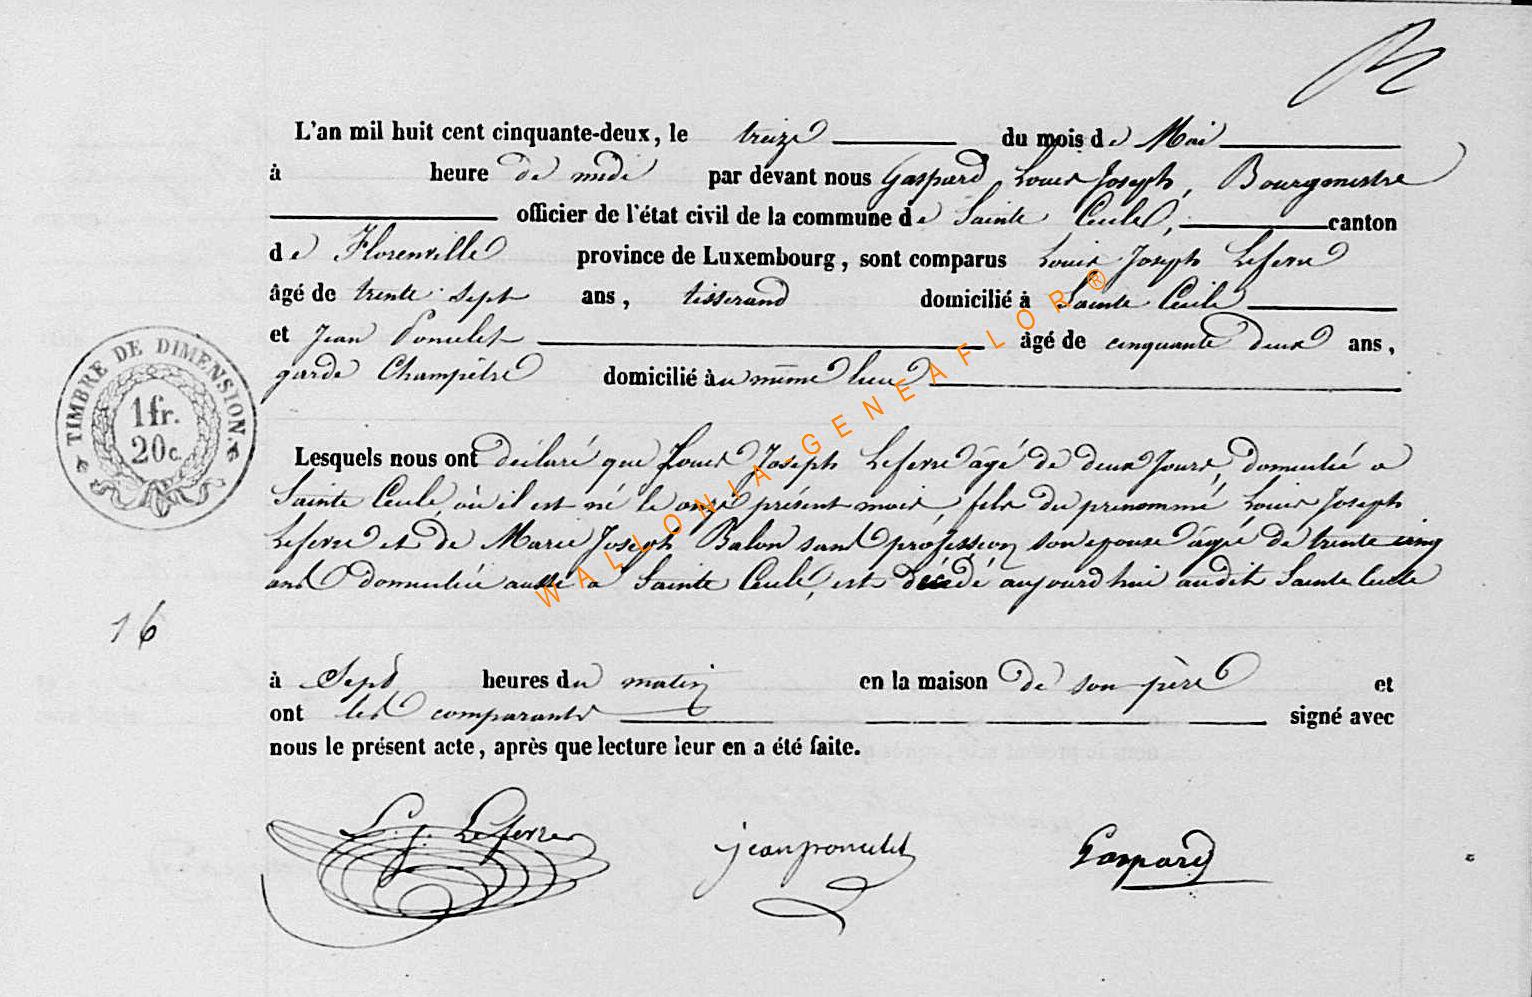 L'an mil huit cent cinquante-deux, le treize du mois de Mai
à heure de midi par devant nous Gaspard Louis Joseph, Bourgmestre
officier de l'état civil de la commune de Sainte Cecile, canton
de Florenville province de Luxembourg, sont comparus Louis Joseph Lefevre
âgé de trente sept ans, tisserand domicilié à Sainte Cecile
et Jean Poncelet âgé de cinquante deux ans,
garde Champêtre domicilié au même lieu
TIMBRE DE DIMENSION
1 fr.
20 c.
Lesquels nous ont déclaré que Louis Joseph Lefevre âgé de deux Jours, domicilié a
Sainte Cecile, où il est né le onze présent mois, fils du prenommé Louis Joseph
Lefevre et de Marie Joseph Balon sans profession son epouse âgée de trente cinq
ans domiciliée aussi a Sainte Cecile, est décédé aujourd'hui audit Sainte Cecile
16
à Sept heures du matin en la maison de son père et
ont les comparants signé avec
nous le présent acte, après que lecture leur en a été faite.
L. J. Lefevre jean poncelet Gaspard
WALLONIA-GENEAFLOR®